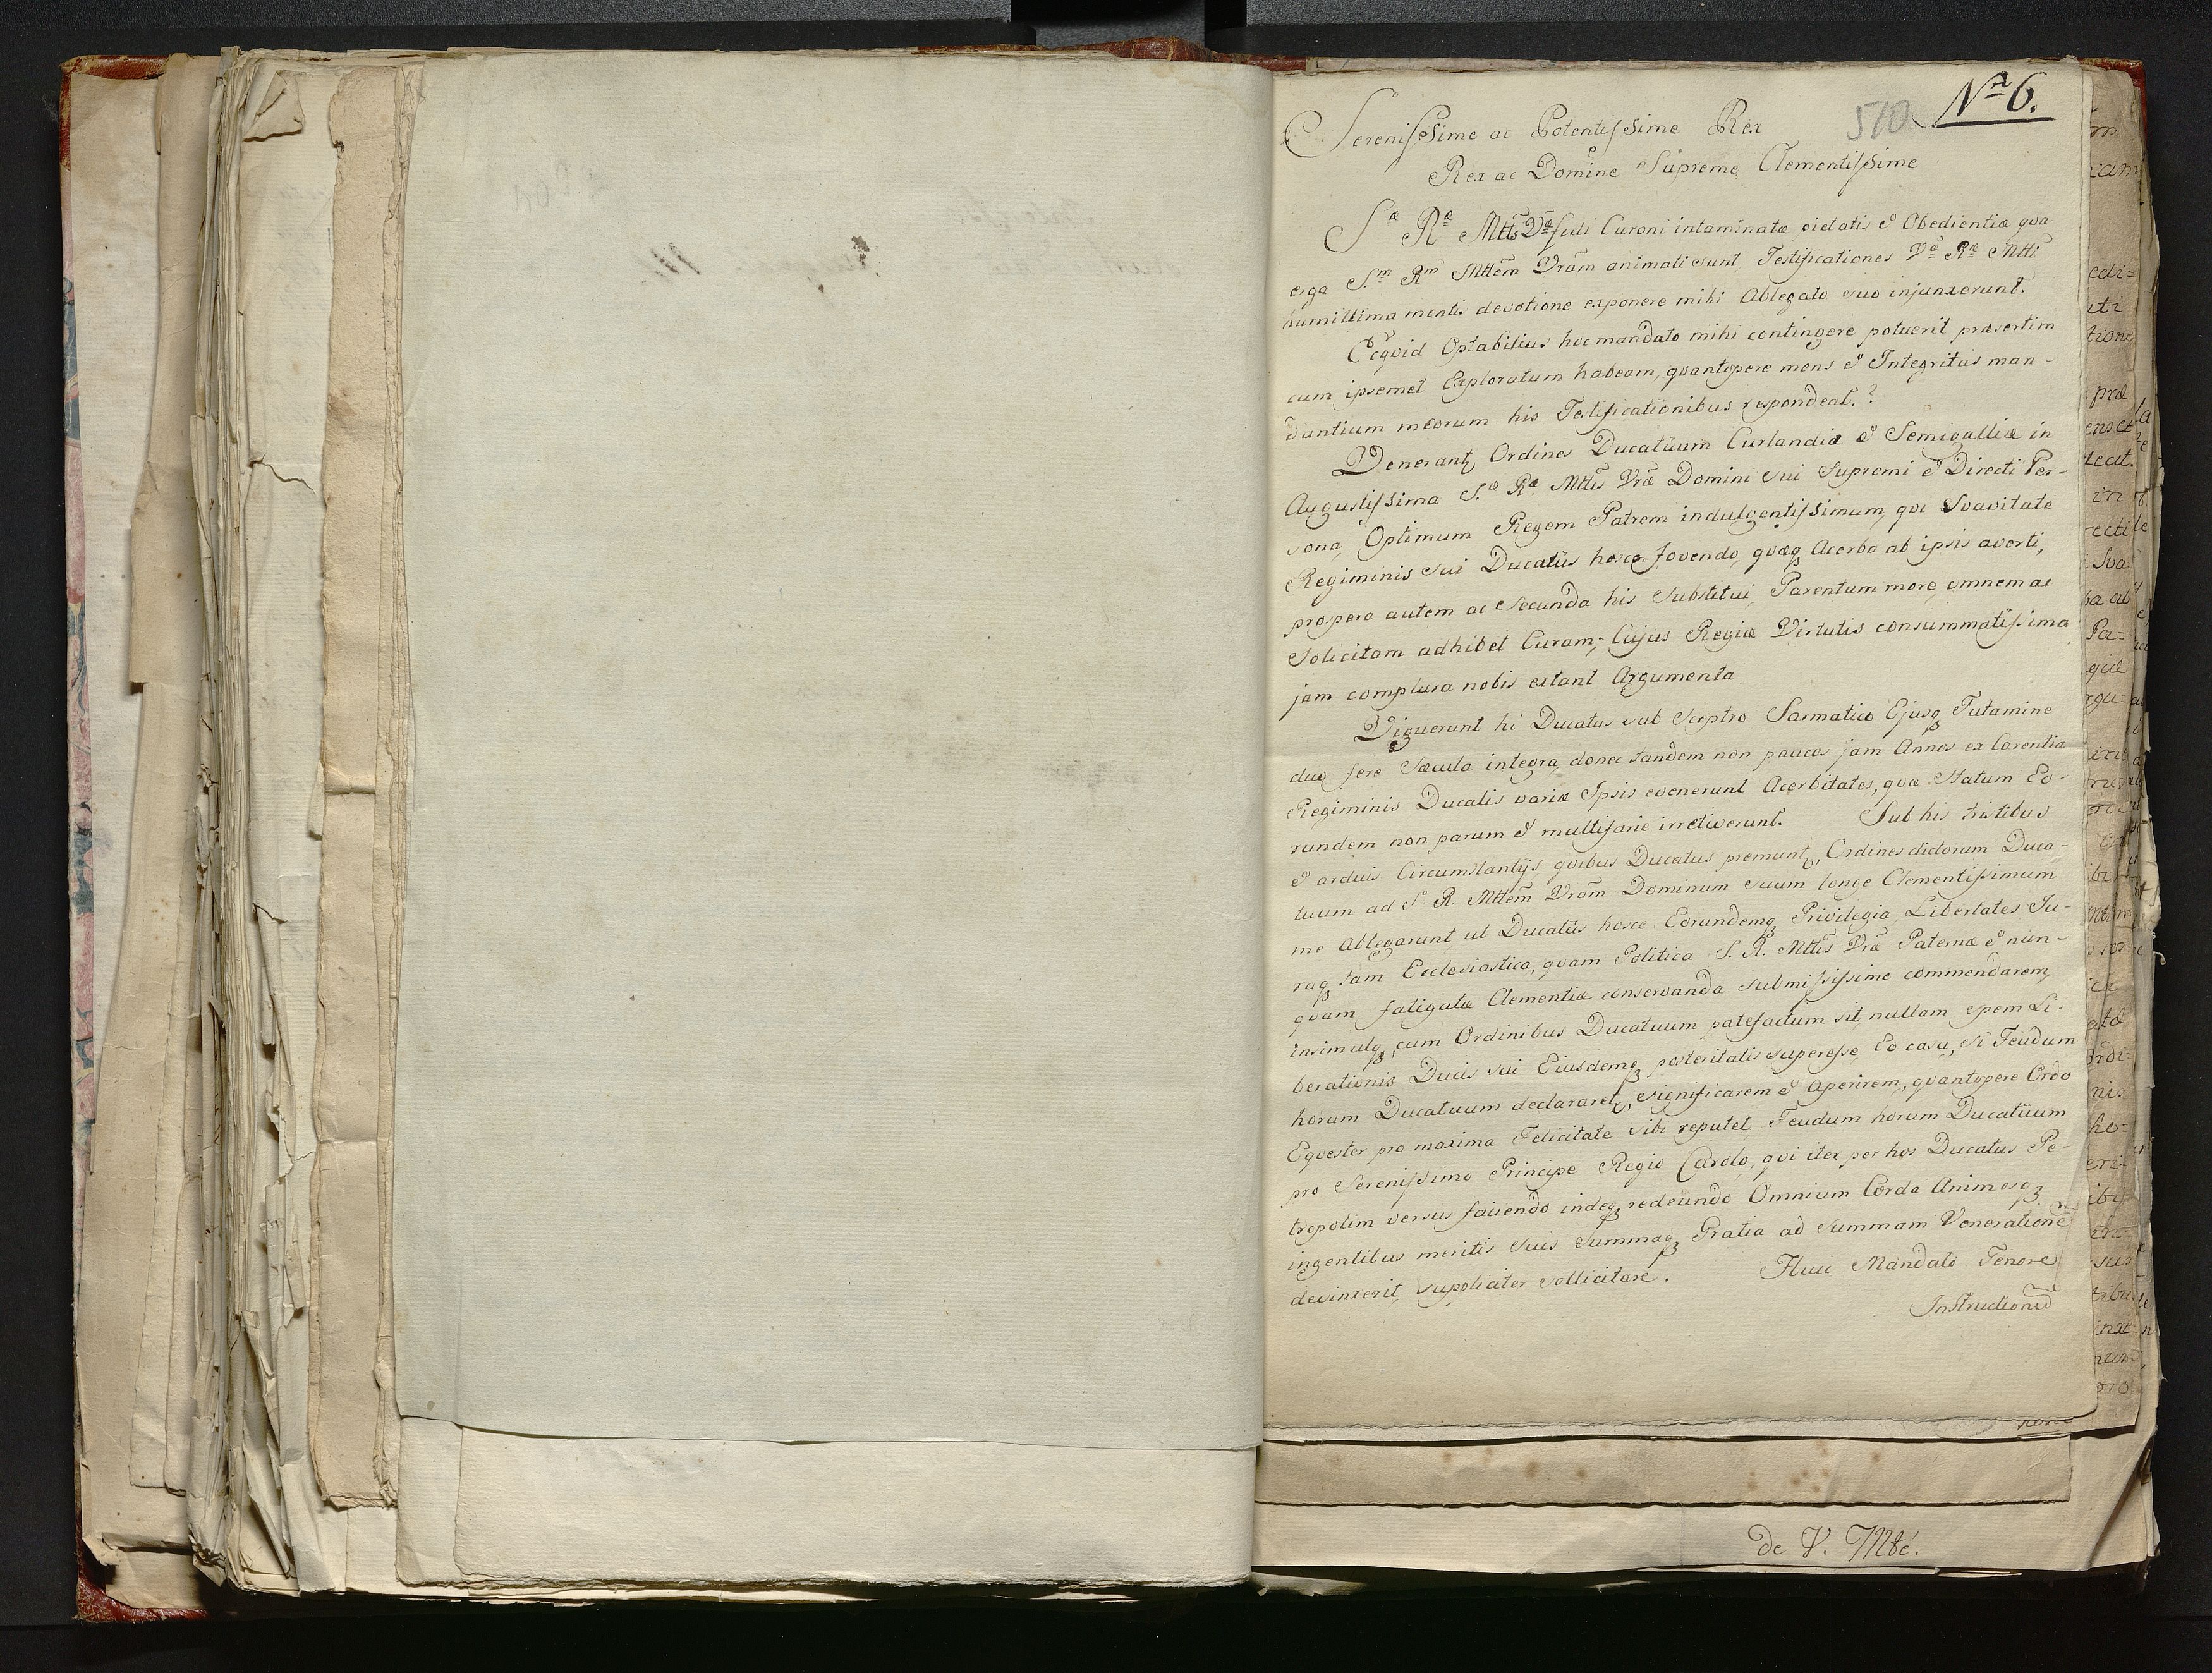 510. Nro 6.
Serenissime ac Potentissime Rex
Rex ac Domine Supreme Clementissime
Sæ Ræ Mttis Væ fidi Curoni intaminatæ pietatis & Obedientiæ qva
erga S.m Rm Mttem Vram animati sunt, Testificationes Væ Ræ Mtti
humillima mentis devotione exponere mihi Ablegato suo injunxerunt.
Ecqvid Optabilius hoc mandato mihi contingere potuerit præsertim
cum ipsemet Exploratum habeam, qvantopere mens & Integritas man-
dantium meorum his Testificationibus respondeat.?
Venerantz Ordines Ducatuum Curlandiæ & Semigalliæ in
Augustissima S.æ Ræ Mttis Vræ Domini sui Supremi & Directi Per-
sona, Optimum Regem Patrem indulgentissimum, qvi Svavitate
Regiminis sui Ducatus hosce fovendo, qvæq Acerba ab ipsis averti,
prospera autem ac Secunda his Substitui, Parentum more, omnem ac
Solicitam adhibet Curam; Cujus Regiæ Virtutis consummatissima
jam complura nobis extant Argumenta
Viguerunt hi Ducatus sub Sceptro Sarmatico Ejusq Tutamine
duo fere Sæcula integra, donec tandem non paucos jam Annos ex Carentia
Regiminis Ducalis variæ Ipsis evenerunt Acerbitates, qvæ Statum Eo-
rundem non parum & multifarie irretiverunt. Sub his tristibus
& arduis Circumstantijs qvibus Ducatus premuntz, Ordines dictorum Duca-
tuum ad S. R. Mttem Vram Dominum suum longe Clementissimum
me Ablegarunt ut Ducatus hosce Eorundemq Privilegia, Libertates Ju-
raq tam Ecclesiastica, qvam Politica S. R. Mttis Vræ Paternæ & nun-
qvam fatigatæ Clementiæ conservanda submississime commendarem,
insimulq cum Ordinibus Ducatuum patefactum sit nullam spem Li-
berationis Ducis sui Eiusdemq posteritatis superesse, Eo casu, si Feudum
horum Ducatuum declararetz, significarem & Aperirem, qvantopere Ordo
Eqvester pro maxima Felicitate sibi reputet, Feudum horum Ducatuum
pro Serenissimo Principe Regio Carolo, qvi iter per hos Ducatus Pe-
tropolim versus faciendo indeq redeundo Omnium Corda Animosq
ingentibus meritis suis summaq Gratia ad summam Veneratione
devinxerit suppliciter sollicitare. Huic Mandato Tenore
Instructionis
de V. Mté.